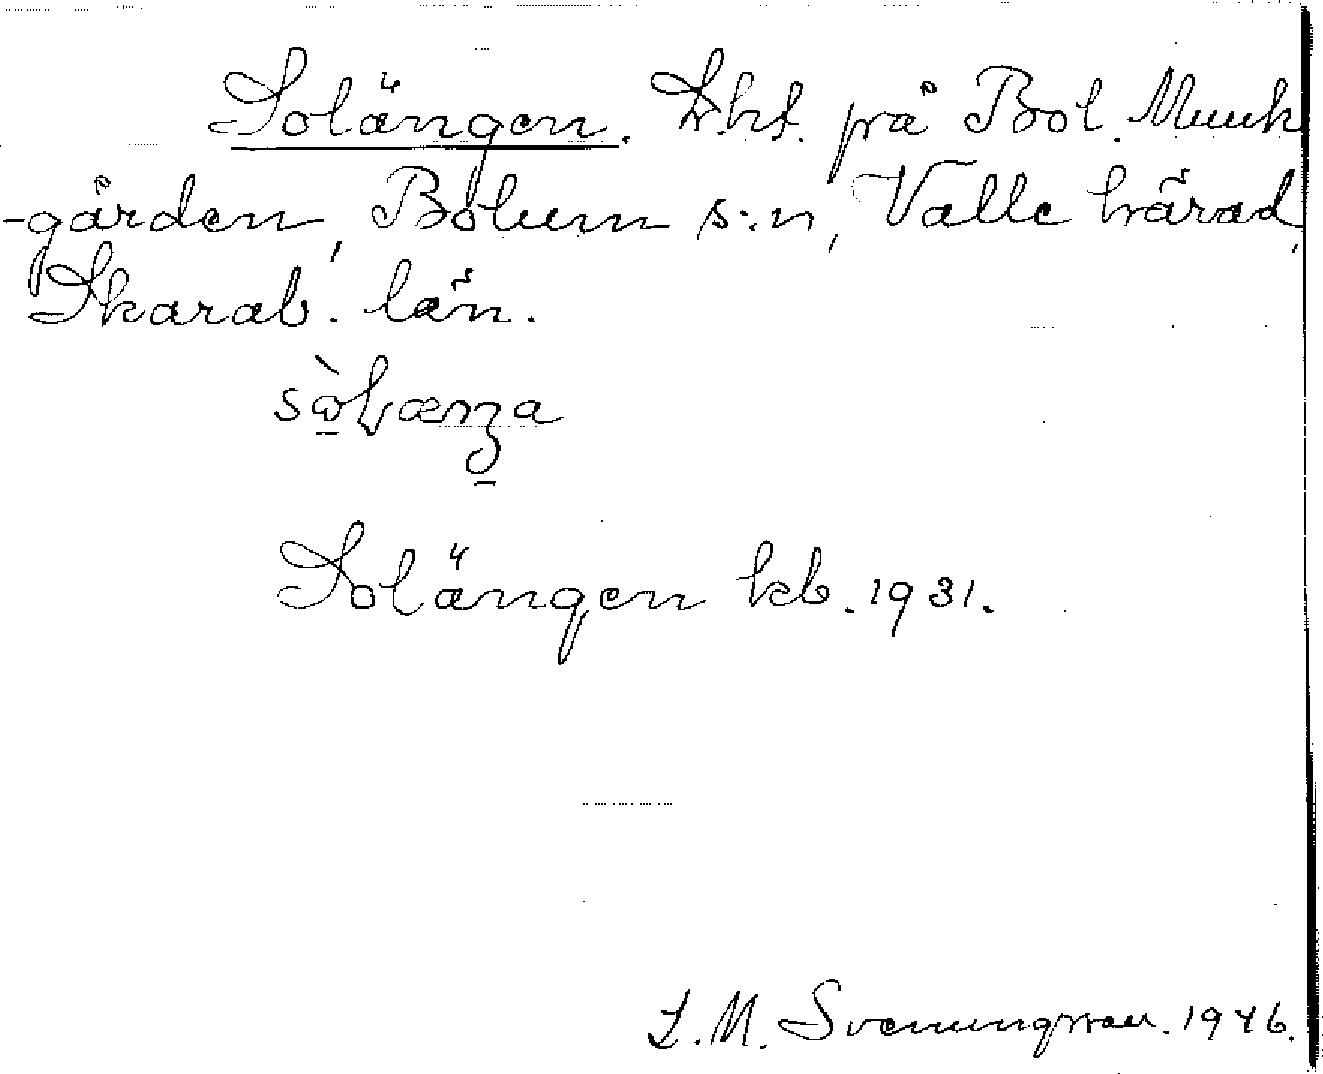 Solängen. Lht. på Bol. Munk
-gården, Bolum s:n, Valle härad,
Skarab. län.
Solängen kb. 1931.
S. M. Svenungsson. 1946.